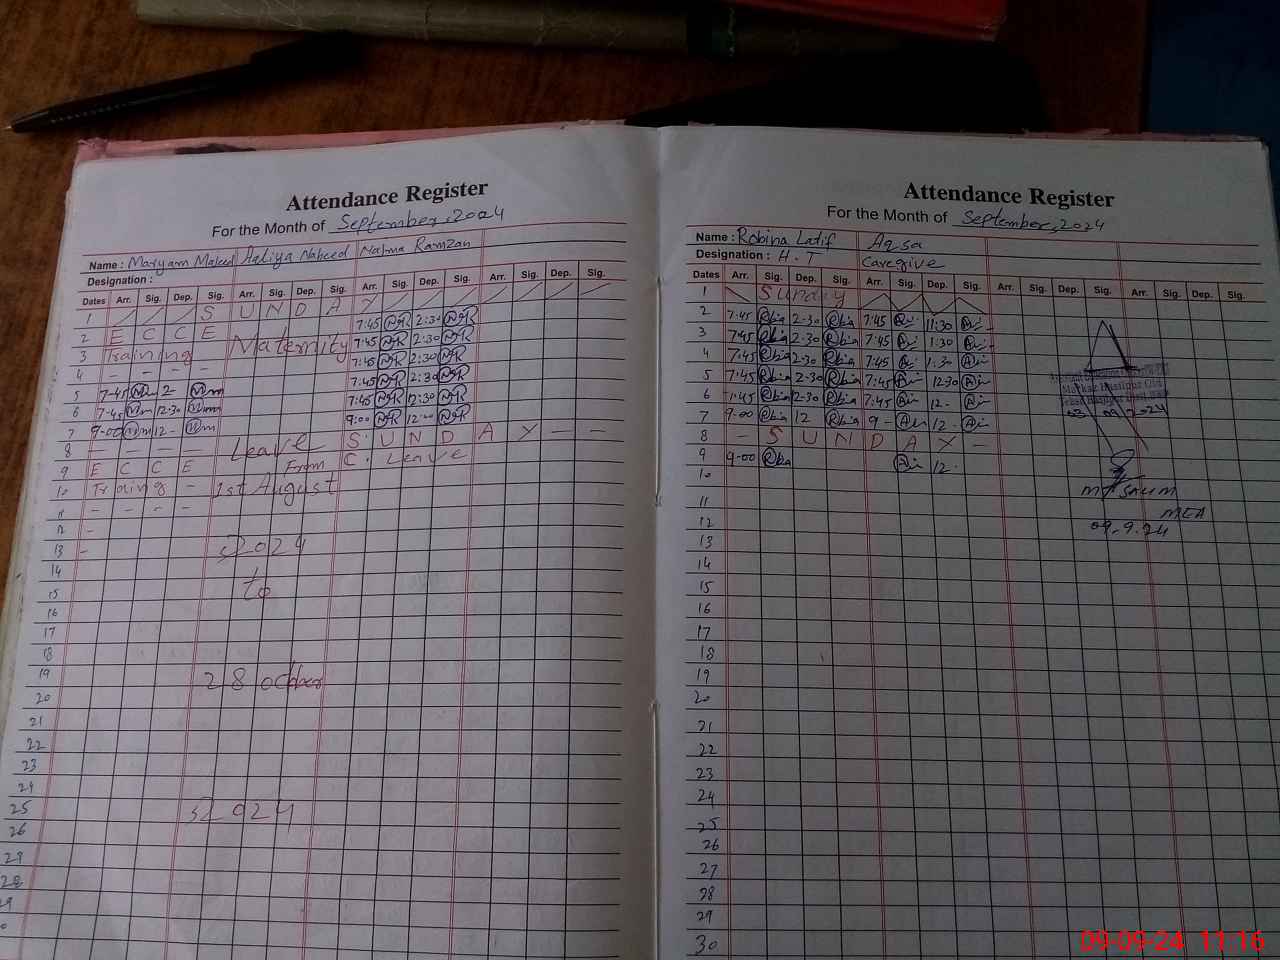 Attendance Register
For the Month of September, 2024
Name : Maryam Majeed Aaliya Nabeed Najma Ramzan
Designation :
Dates Arr. Sig. Dep. Sig. Arr. Sig. Dep. Sig. Arr. Sig. Dep. Sig. Arr. Sig. Dep. Sig.
1 S U N D A Y
2 E C C E 7:45 NR 2:30 NR
3 Training Maternity 7:45 NR 2:30 NR
4 - - - - 7:45 NR 2:30 NR
5 7:45 Mm 2- Mm 7:45 NR 2:30 NR
6 7:45 Mm 12:30 Mm 7:45 NR 12:30 NR
7 9-00 Mm 12- Mm 9:00 NR 12:00 NR
8 - - - - Leave S U N D A Y - -
9 E C C E From C. Leave
10 Training - 1st August
11 - - - -
12 -
13 - 2024
14
15 to
16
17
18
19 28 octber
20
21
22
23
24
25 2024
26
27
28
29
Attendance Register
For the Month of September, 2024
Name : Robina Latif Aqsa
Designation : H.T Caregive
Dates Arr. Sig. Dep. Sig. Arr. Sig. Dep. Sig. Arr. Sig. Dep. Sig. Arr. Sig. Dep. Sig.
1 Sunday
2 7:45 Rbia 2-30 Rbia 7:45 11:30
3 7:45 Rbia 2-30 Rbia 7:45 1:30
4 7:45 Rbia 2-30 Rbia 7:45 1:30
5 7:45 Rbia 2-30 Rbia 7:45 12-30
6 7:45 Rbia 2-30 Rbia 7:45 12-
7 9-00 Rbia 12 Rbia 9- 12-
8 - S U N D A Y -
9 9-00 Rba 12-
10
11
12
13
14
15
16
17
18
19
20
21
22
23
24
25
26
27
28
29
30
03 09 2024
M SALIM
MEA
09-9.24
09-09-24 11:16